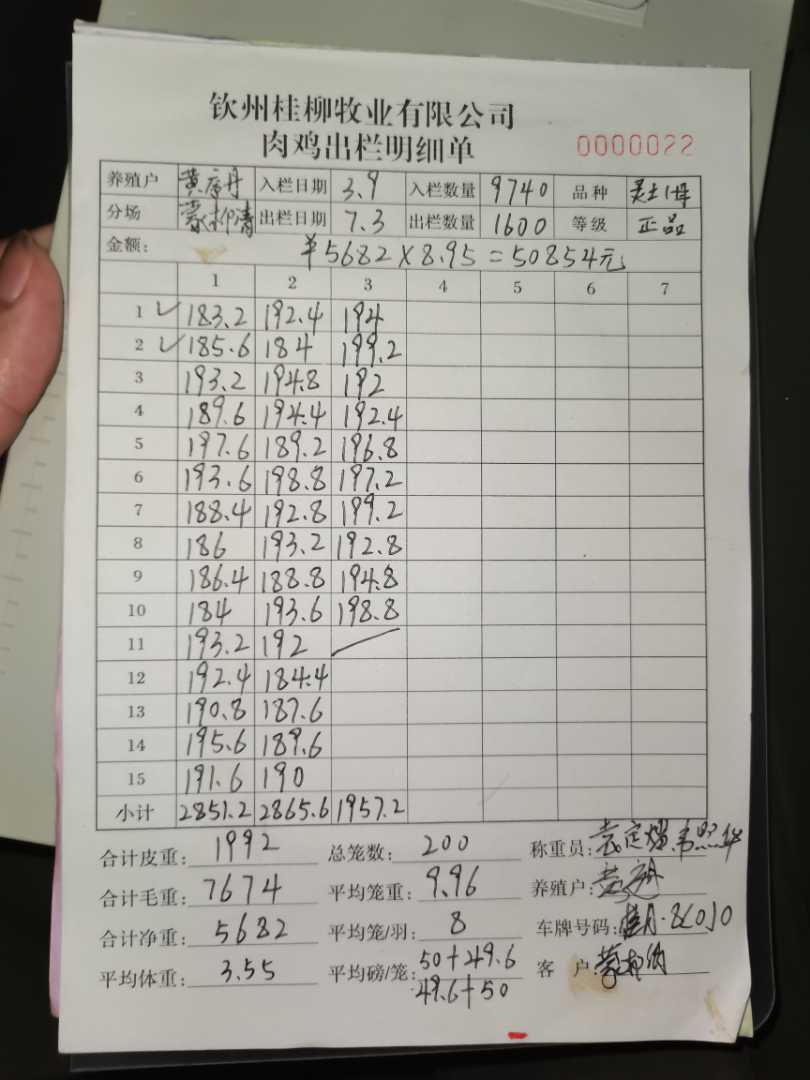 钦州桂柳牧业有限公司
肉鸡出栏明细单 0000022
养殖户 入栏日期 3.9 入栏数量 9740 品种
分场 蒙柳清 出栏日期 7.3 出栏数量 1600 等级 正品
金额: ¥5682×8.95=50854元
1 2 3 4 5 6 7
1 ✓ 183.2 192.4 194
2 ✓ 185.6 184 199.2
3 193.2 194.8 192
4 189.6 194.4 192.4
5 197.6 189.2 196.8
6 193.6 198.8 197.2
7 188.4 192.8 199.2
8 186 193.2 192.8
9 186.4 188.8 194.8
10 184 193.6 198.8
11 193.2 192
12 192.4 184.4
13 190.8 187.6
14 195.6 189.6
15 191.6 190
小计 2851.2 2865.6 1957.2
合计皮重: 1992 总笼数: 200 称重员:
合计毛重: 7674 平均笼重: 9.96 养殖户:
合计净重: 5682 平均笼/羽: 8 车牌号码:
平均体重: 3.55 平均磅/笼: 50+49.6 客 户:
49.6+50